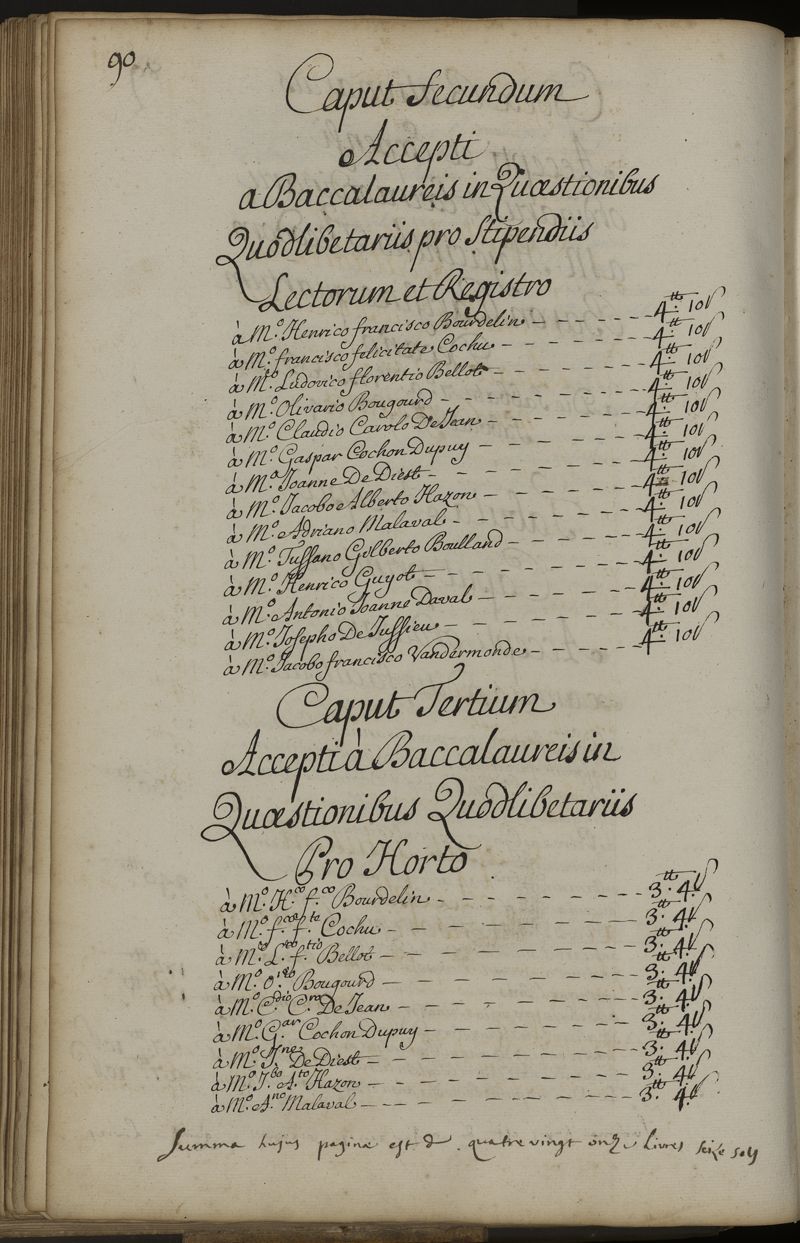 90
Caput Secundum
Accepti
a Baccalaureis in Quæstionibus
Quodlibetariis pro Stipendiis
Lectorum et Registro
à M.º Henrico francisco Bourdelin - - - - - 4.tt 10s
à M.º francisco felicitate Cochu - - - - - - 4.tt 10s
à M.º Ludovico florentio Bellot - - - - - - 4.tt 10s
à M.º Olivario Bougourd - - - - - - - - 4.tt 10s
à M.º Claudio Carolo De Jean - - - - - - - 4.tt 10s
à M.º Gaspar Cochon Dupuy - - - - - - - 4.tt 10s
à M.º Joanne De Diest - - - - - - - - 4.tt 10s
à M.º Jacobo Alberto Hazon - - - - - - 4.tt 10s
à M.º Adriano Malaval - - - - - - - - 4.tt 10s
à M.º Tussano Gilberto Boulland - - - - - 4.tt 10s
à M.º Henrico Guyot - - - - - - - - 4.tt 10s
à M.º Antonio Joanne Daval - - - - - - 4.tt 10s
à M.º Josepho De Jussieu - - - - - - - 4.tt 10s
à M.º Jacobo francisco Vandermonde - - - - - 4.tt 10s
Caput Tertium
Accepti à Baccalaureis in
Quæstionibus Quodlibetariis
Pro Horto
à M.º H.co f.co Bourdelin - - - - - - - - 3.tt 4s
à M.º f.co f.te Cochu - - - - - - - - - 3.tt 4s
à M.º L.co f.tio Bellot - - - - - - - - - 3.tt 4s
à M.º O.rio Bougourd - - - - - - - - - 3.tt 4s
à M.º C.dio C.ro De Jean - - - - - - - - - 3.tt 4s
à M.º G.ar Cochon Dupuy - - - - - - - - 3.tt 4s
à M.º J.ne De Diest - - - - - - - - - - 3.tt 4s
à M.º J.bo A.to Hazon - - - - - - - - - - 3.tt 4s
à M.º A.no Malaval - - - - - - - - - - 3.tt 4s
Summa hujus paginæ est d quatre vingt onze Livres seize sols